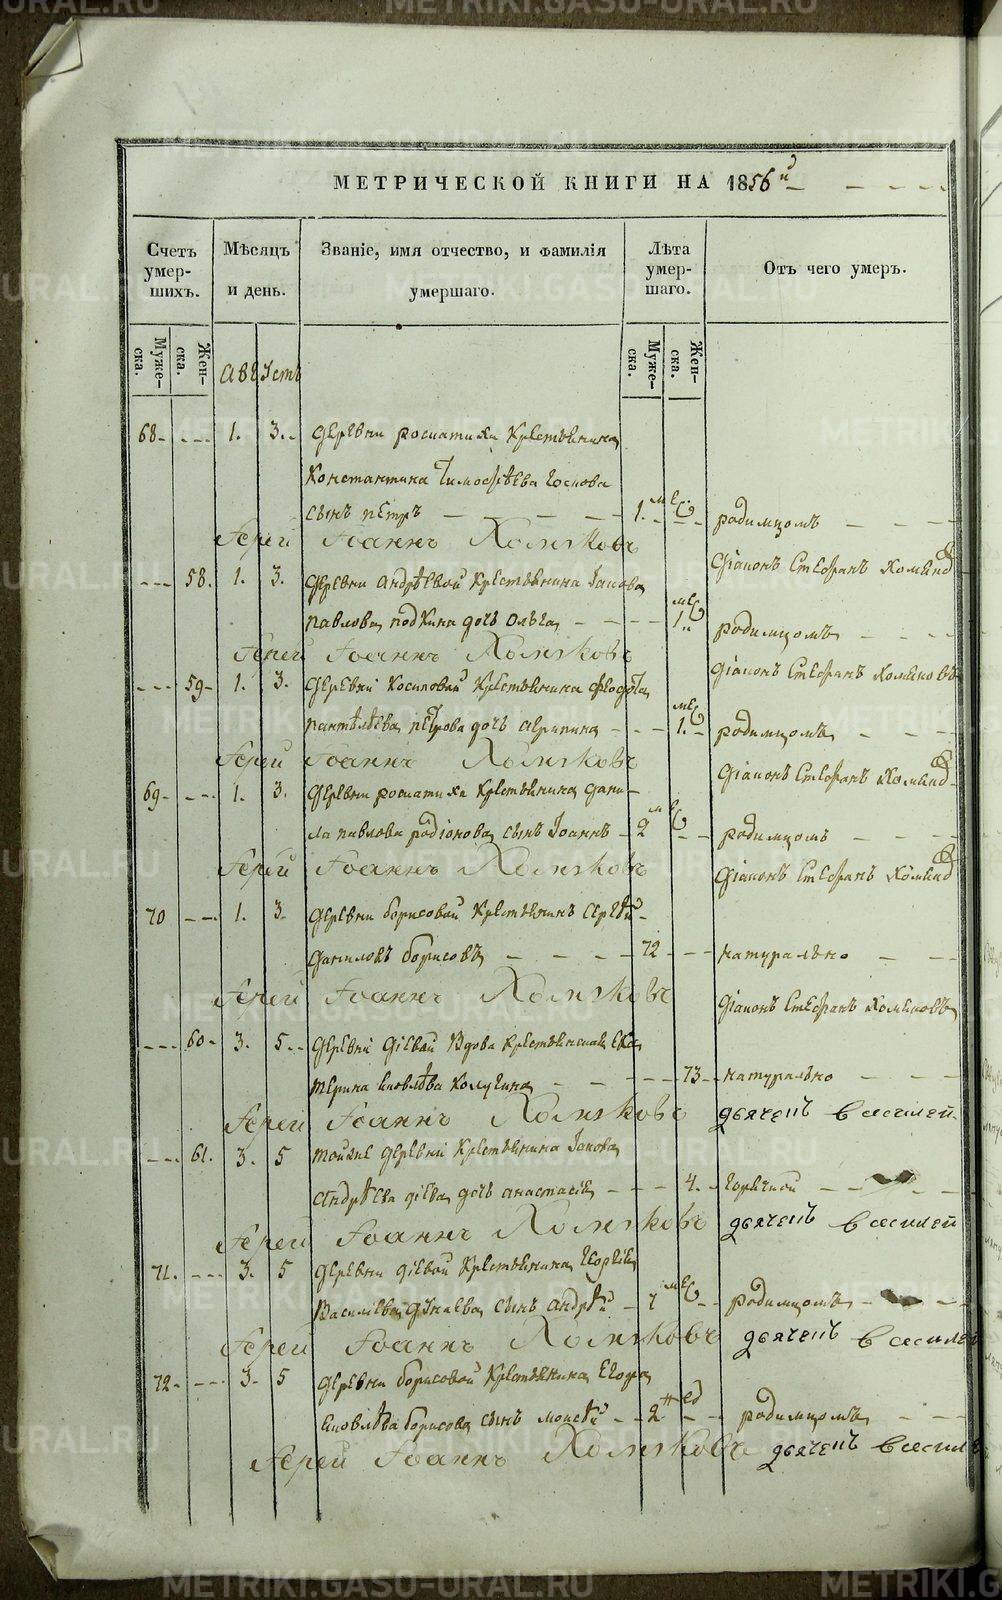 МЕТРИЧЕСКОЙ КНИГИ НА 1856й
Счетъ умершихъ.
Мѣсяцъ и день.
Званіе, имя отчество, и фамилія умершаго.
Лѣта умершаго.
Отъ чего умеръ.
Мужеска.
Женска.
Августъ
Мужеска.
Женска.
68 1. 3. деревни росчатихи крестьянина
Константина Тимофѣева
сынъ петръ 1. мес родимцомъ
Іерей Іоаннъ Холмяковъ
діаконъ Стефанъ
58. 1. 3. деревни андрѣевой крестьянина Іакова
павлова подкина дочь ольга 1. мес родимцомъ
Іерей Іоаннъ Холмяковъ
діаконъ Стефанъ
59 1. 3. деревни Косиковой крестьянина феодота
пантѣлѣева пѣтрова дочь агрипина 1. мес родимцомъ
Іерей Іоаннъ Холмяковъ
діаконъ Стефанъ
69 1. 3. деревни росчатихи крестьянина дани-
ла павлова родіонова сынъ Іоаннъ 2 мес родимцомъ
Іерей Іоаннъ Холмяковъ
діаконъ Стефанъ
70 1. 3. деревни борисовой крестьянинъ сергѣй
даниловъ борисовъ 72 натурально
Іерей Іоаннъ Холмяковъ
діаконъ Стефанъ
60 3. 5. деревни діевой вдова крестьянская ека
терина яковлѣва 73 натурально
Іерей Іоаннъ Холмяковъ дьячекъ василей
61. 3. 5 тойже деревни крестьянина Іакова
андрѣева діева дочь анастасія 4. горячкой
Іерей Іоаннъ Холмяковъ дьячекъ василей
71. 3. 5 деревни діевой крестьянина георгія
василіева дунаева сынъ андрѣй 1 мес родимцомъ
Іерей Іоаннъ Холмяковъ дьячекъ василей
72 3. 5 деревни борисовой крестьянина егора
яковлѣва борисова сынъ моисѣй 2 нед родимцомъ
Іерей Іоаннъ Холмяковъ дьячекъ
METRIKI.GASO-URAL.RU